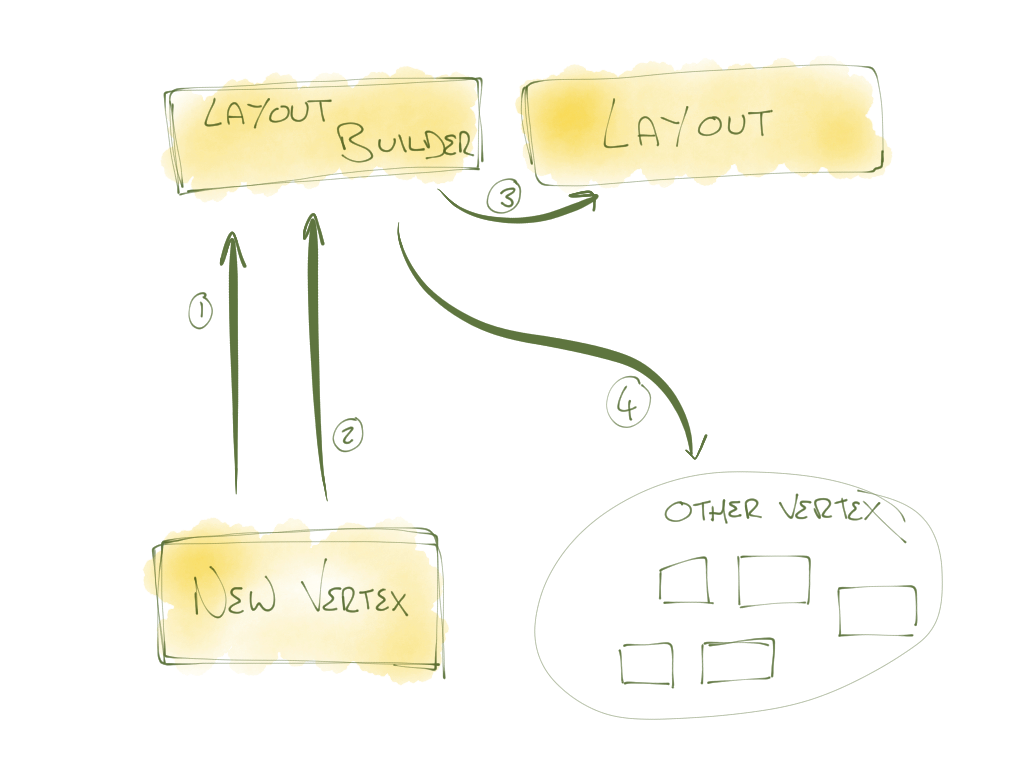 LAYOUT
BUILDER
LAYOUT
3
1
4
2
OTHER VERTEX
NEW VERTEX